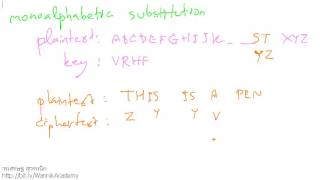 monoalphabetic substitution
plaintext: ABCDEFGHIJK _ _ ST XYZ
key : VRHF YZ
plaintext : THIS IS A PEN
ciphertext : Z Y Y V
http://bit.ly/WannikAcademy